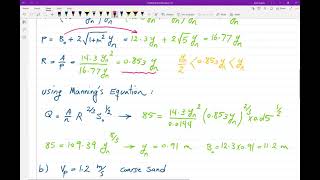 P = B_n + 2√(1+m²) y_n = 12.3 y_n + 2√5 y_n = 16.77 y_n
R = A/P = 14.3 y_n² / 16.77 y_n = 0.853 y_n
y_n/2 < 0.853 y_n < y_n
using Manning's Equation :
Q = A/n R^(2/3) S_o^(1/2) → 85 = 14.3 y_n² / 0.0194 (0.853 y_n)^(2/3)
85 = 109.39 y_n^(8/3) → y_n = 0.91 m B_n = 12.3 x 0.91 = 11.2 m
b) V_p = 1.2 m/s coarse sand